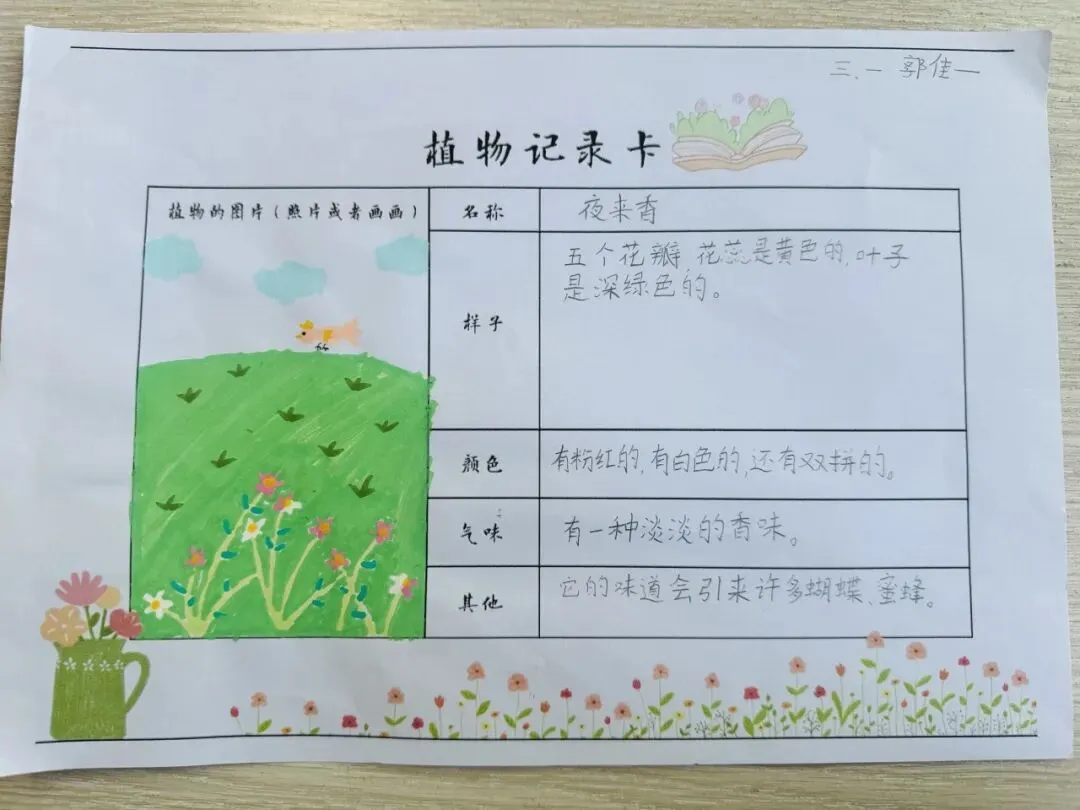 三.一 郭佳一
植物记录卡
植物的图片(照片或者画画)
名称
夜来香
样子
五个花瓣,花蕊是黄色的,叶子
是深绿色的。
颜色
有粉红的,有白色的,还有双拼的。
气味
有一种淡淡的香味。
其他
它的味道会引来许多蝴蝶、蜜蜂。